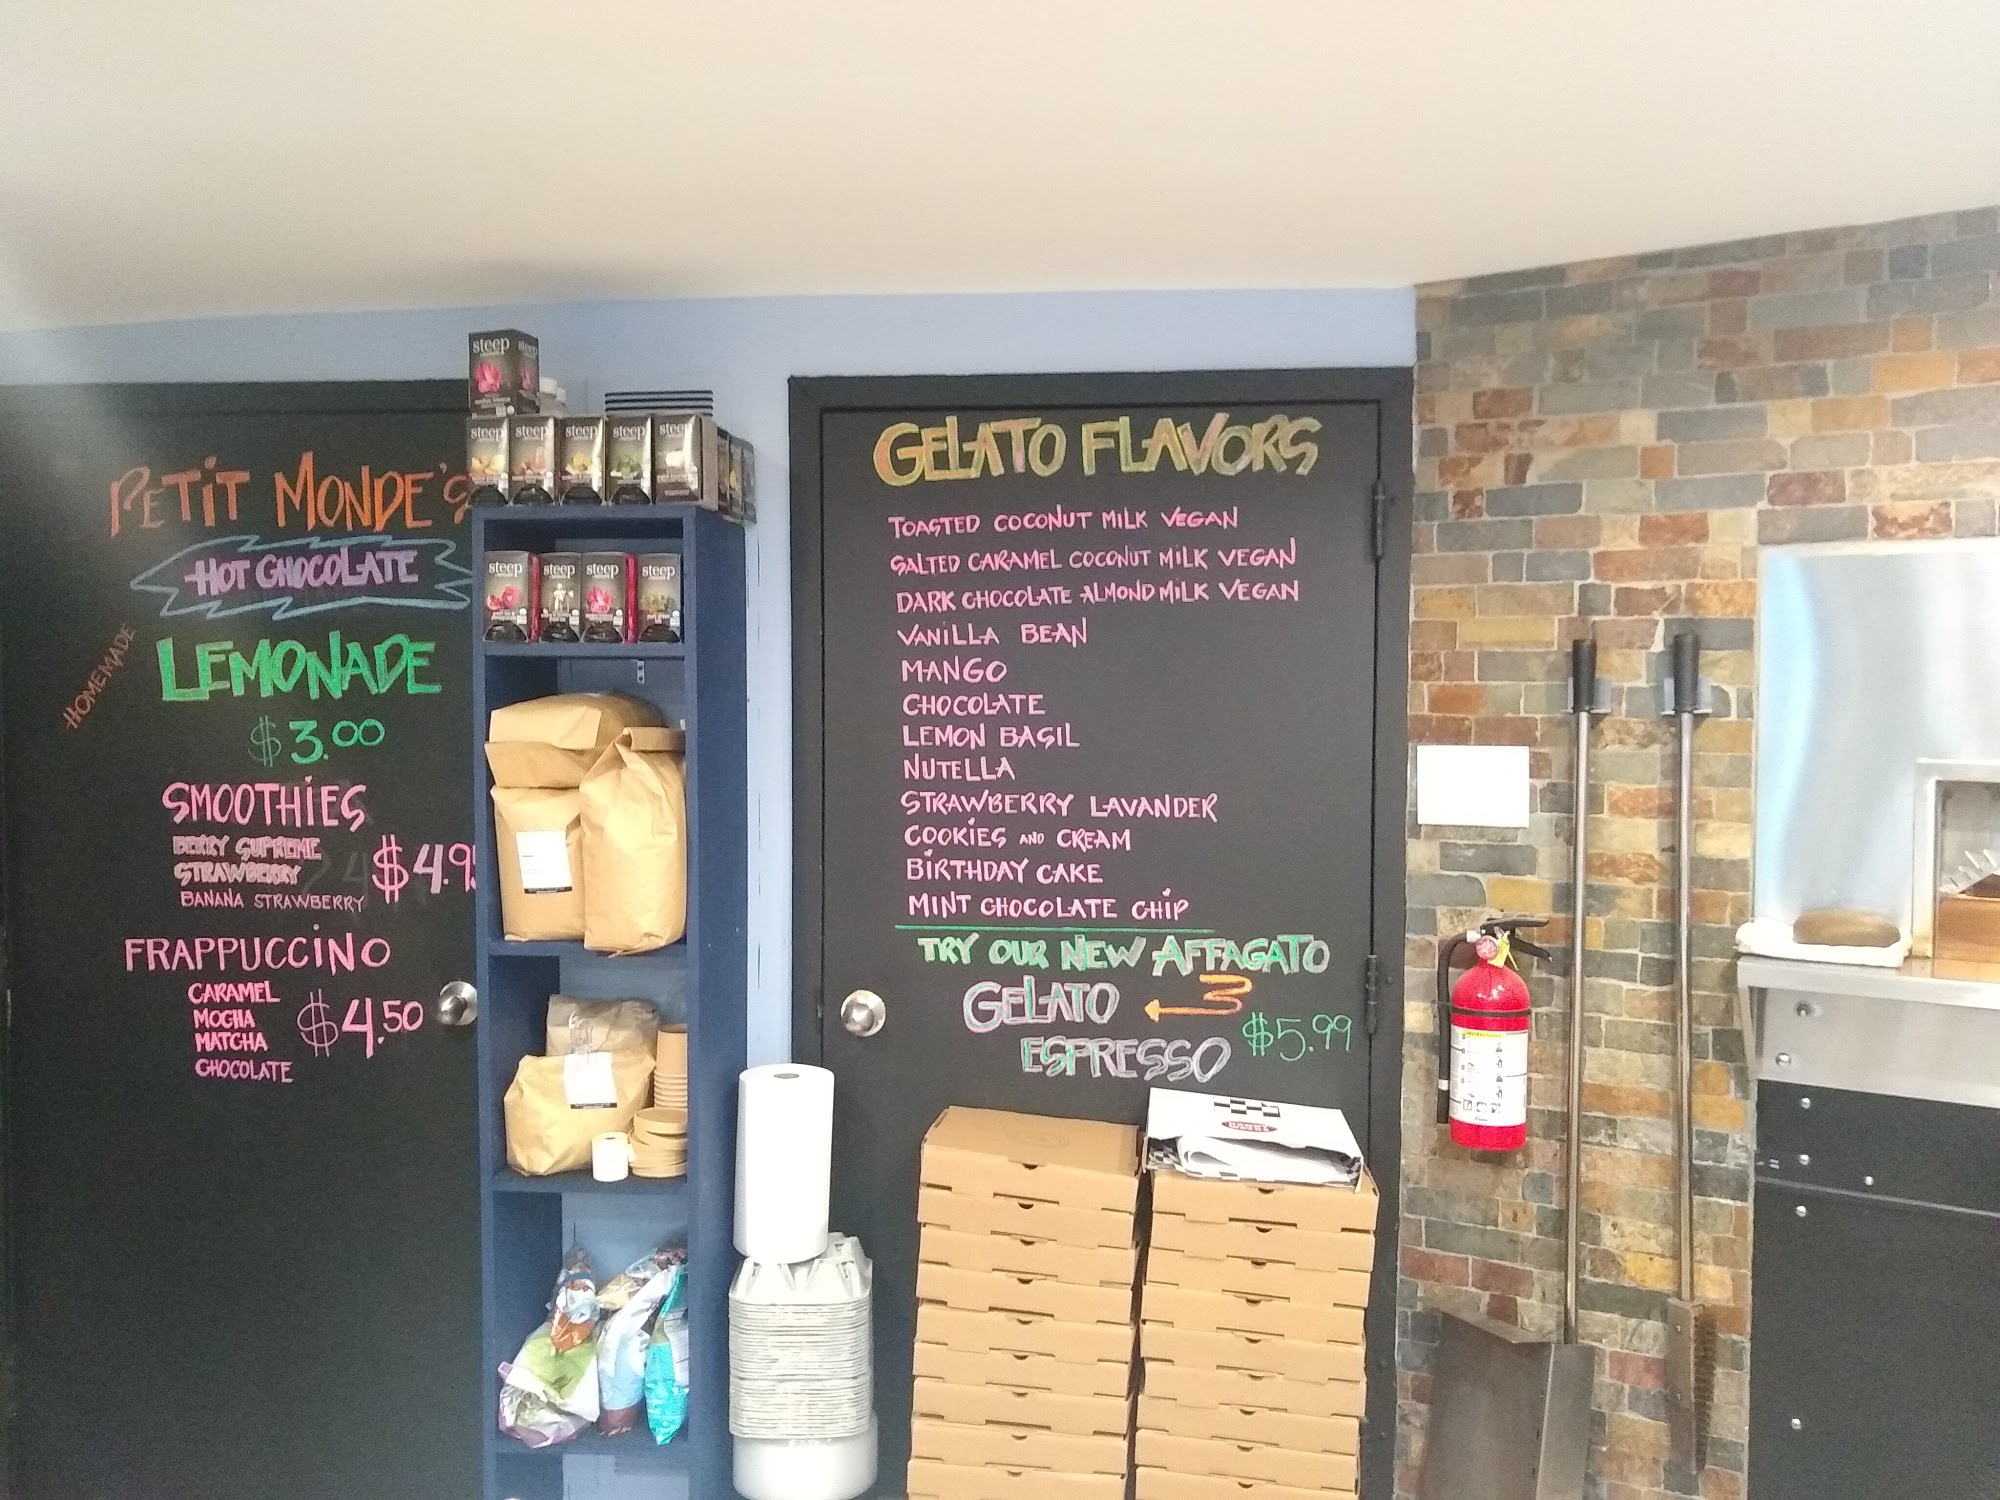 PETIT MONDE'S
HOT CHOCOLATE
HOMEMADE
LEMONADE
$3.00
SMOOTHIES
BERRY SUPREME
STRAWBERRY
BANANA STRAWBERRY
$4.95
FRAPPUCCINO
CARAMEL
MOCHA
MATCHA
CHOCOLATE
$4.50
steep
steep
steep
steep
steep
steep
steep
steep
steep
steep
steep
GELATO FLAVORS
TOASTED COCONUT MILK VEGAN
SALTED CARAMEL COCONUT MILK VEGAN
DARK CHOCOLATE ALMOND MILK VEGAN
VANILLA BEAN
MANGO
CHOCOLATE
LEMON BASIL
NUTELLA
STRAWBERRY LAVANDER
COOKIES AND CREAM
BIRTHDAY CAKE
MINT CHOCOLATE CHIP
TRY OUR NEW AFFAGATO
GELATO
ESPRESSO
$5.99